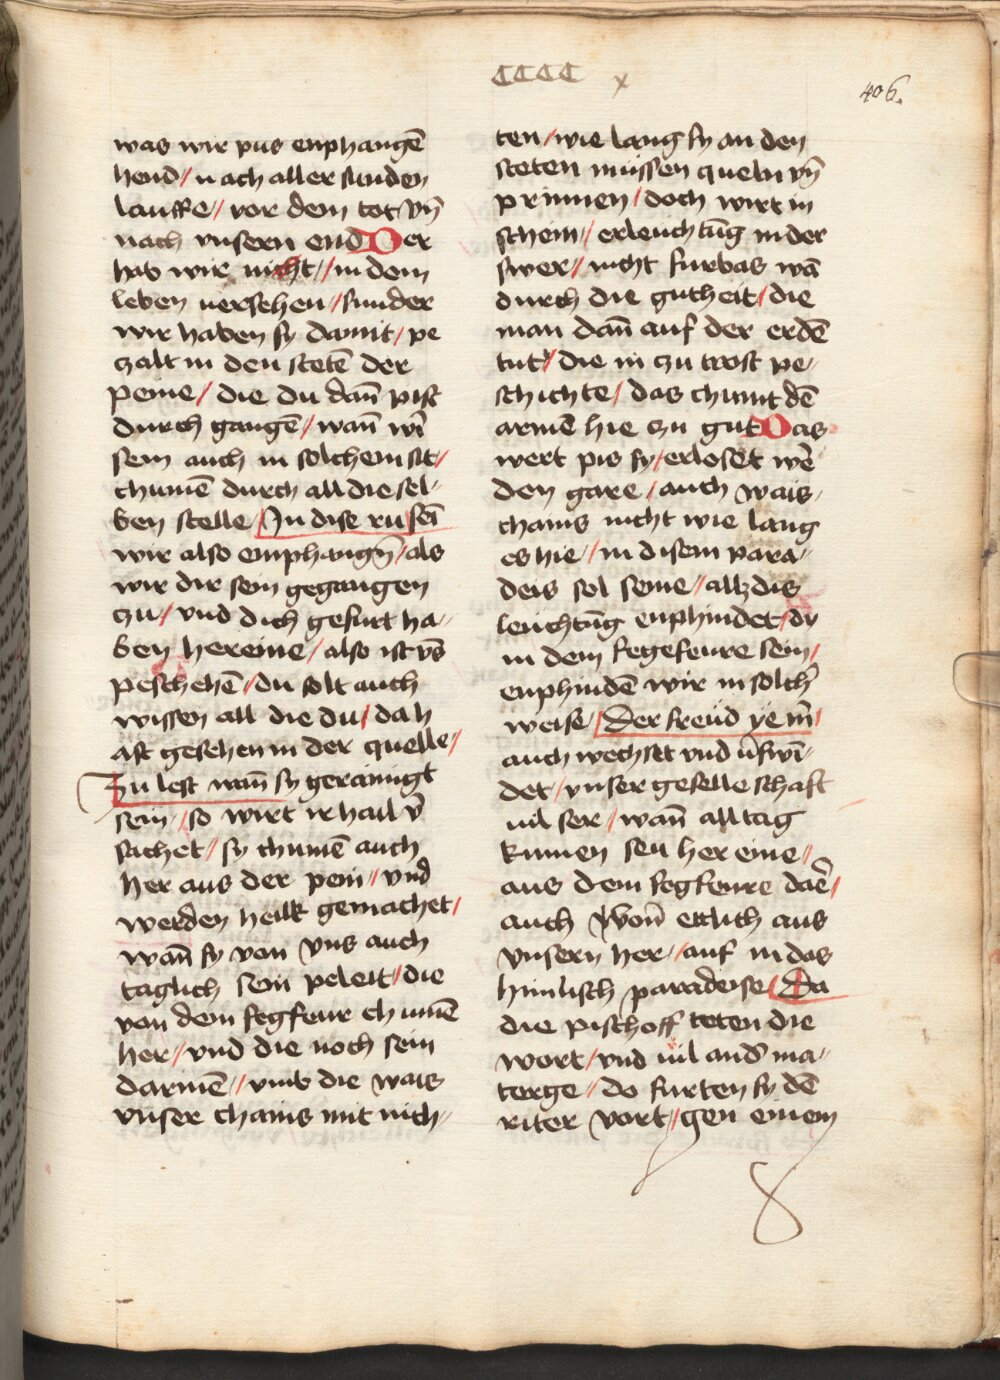 CCCC x
406.
was wir pus enphangē
hend / nach aller sunden
lauffe // vor dem tot vn̄
nach vnsern end Der
hab wir nicht // in dem
leben versehen // sunder
wir haben sy damit / pe
zalt in den stetē der
peine / die du dan̄ pist
durch gangē / wan̄ wī
sein auch in solchem sit //
chumē durch all die sel-
ben stelle / In dise ru sei
wir also emphangn̄ / als
wir dir sein gegangen
zu / vnd dich gefurt ha-
ben hereine / also ist vs̄
peschehē / du solt auch
wissen all die du / da h
ast gesehen in der quelle /
Zu lest wan̄ sy gerainigt
sein / so wirt ir hail v̄
sachet // sy chumē auch
her aus der pein // vnd
werden heilk gemachet /
wan̄ sy von vns auch
taglich sein peleit / die
von dem fegfeur chumē
her // vnd die noch sein
darinē // vmb die wais
vnser chains mit nich-
ten / wie lang sy an den
steten müssen queln vn̄
prinnen / doch wirt in
schein / erleuchtūg in der
swer // nicht furbas wā
durch die gutheit / die
man dan̄ auf der erdē
tut / die in zu trost pe-
schichte / das chumt dē
armē hie zu gut Das
wert pis sy / erloset wē
den gare / auch wais
chains nicht wie lang
es hie // in disem para-
deis sol seine / allz dis
leuchtūg enphindet / dy
in dem fegefeure sein /
enphindē wir in solchr̄
weise / Der freüd ye m̄ /
auch wechset vnd v̄swi-
det / vnser geselleschaft
uil ser / wan̄ all tag
kumen seu her eine //
aus dem fegfeure daē /
auch von̄ ettlich aus
vnsern her // auf in das
himlisch paradeise / Da
die pischoff teten die
wort / vnd uil and̄ ma-
terge // do furten sy dē
riter vort // gen einem